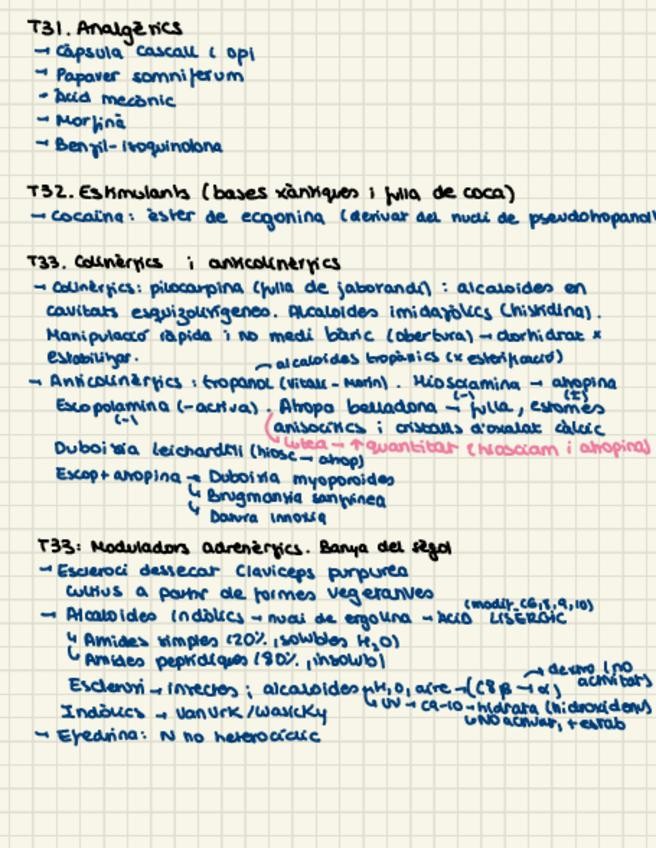 T31. Analgèrics
→ Càpsula cascall i opi
→ Papaver somniferum
→ Àcid mecònic
→ Morfina
→ Benzil-isoquinolona
T32. Estimulants (bases xàntiques i fulla de coca)
→ Cocaïna: èster de ecgonina (derivat del nucli de pseudotropanol
T33. Colinèrgics i anticolinèrgics
→ Colinèrgics: pilocarpina (fulla de jaborandi): alcaloides en
cavitats esquizolirígenes. Alcaloides imidazòlics (histidina).
Manipulació ràpida i no medi bàsic (obertura) → clorhidrat x
estabilitzar.
→ alcaloides tropànics (x esterificació)
→ Anticolinèrgics: tropanol (Vitali-Morin). Hiosciamina → atropina
(-) (±)
Escopolamina (-activa). Atropa belladona → fulla, estomes
(-)
anisocítics i cristalls d'oxalat càlcic
lutea → ↑ quantitat (hiosciam i atropina)
Duboisia leichardtii (hiosc → atrop)
Escop+atropina → Duboisia myoporoides
↳ Brugmansia sanguinea
↳ Datura innoxia
T33: Moduladors adrenèrgics. Banya del sègol
→ Escleroci dessecat Claviceps purpurea
Cultius a partir de formes vegetatives
→ Alcaloides indòlics → nucli de ergolina → ÀCID LISÈRGIC
(modif. C6,8,9,10)
↳ Amides simples (20%, solubles H2O)
↳ Amides peptídiques (80%, insolub)
→ dextro (no
activitat)
Esclerozi → insectes i alcaloides → H2O, aire → (C8 β → α)
↳ UV → C9-10 → hidrata (hidroxidens)
↳ NO activat, + estab
Indòlics → Van Urk/Wasicky
→ Efedrina: N no heterocíclic